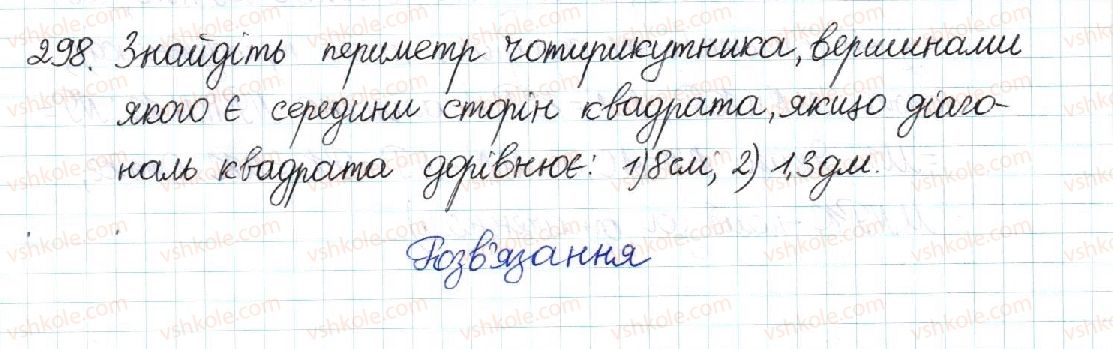 298. Знайдіть периметр чотирикутника, вершинами
якого є середини сторін квадрата, якщо діаго-
наль квадрата дорівнює: 1) 8 см; 2) 1,3 дм.
Розв'язання